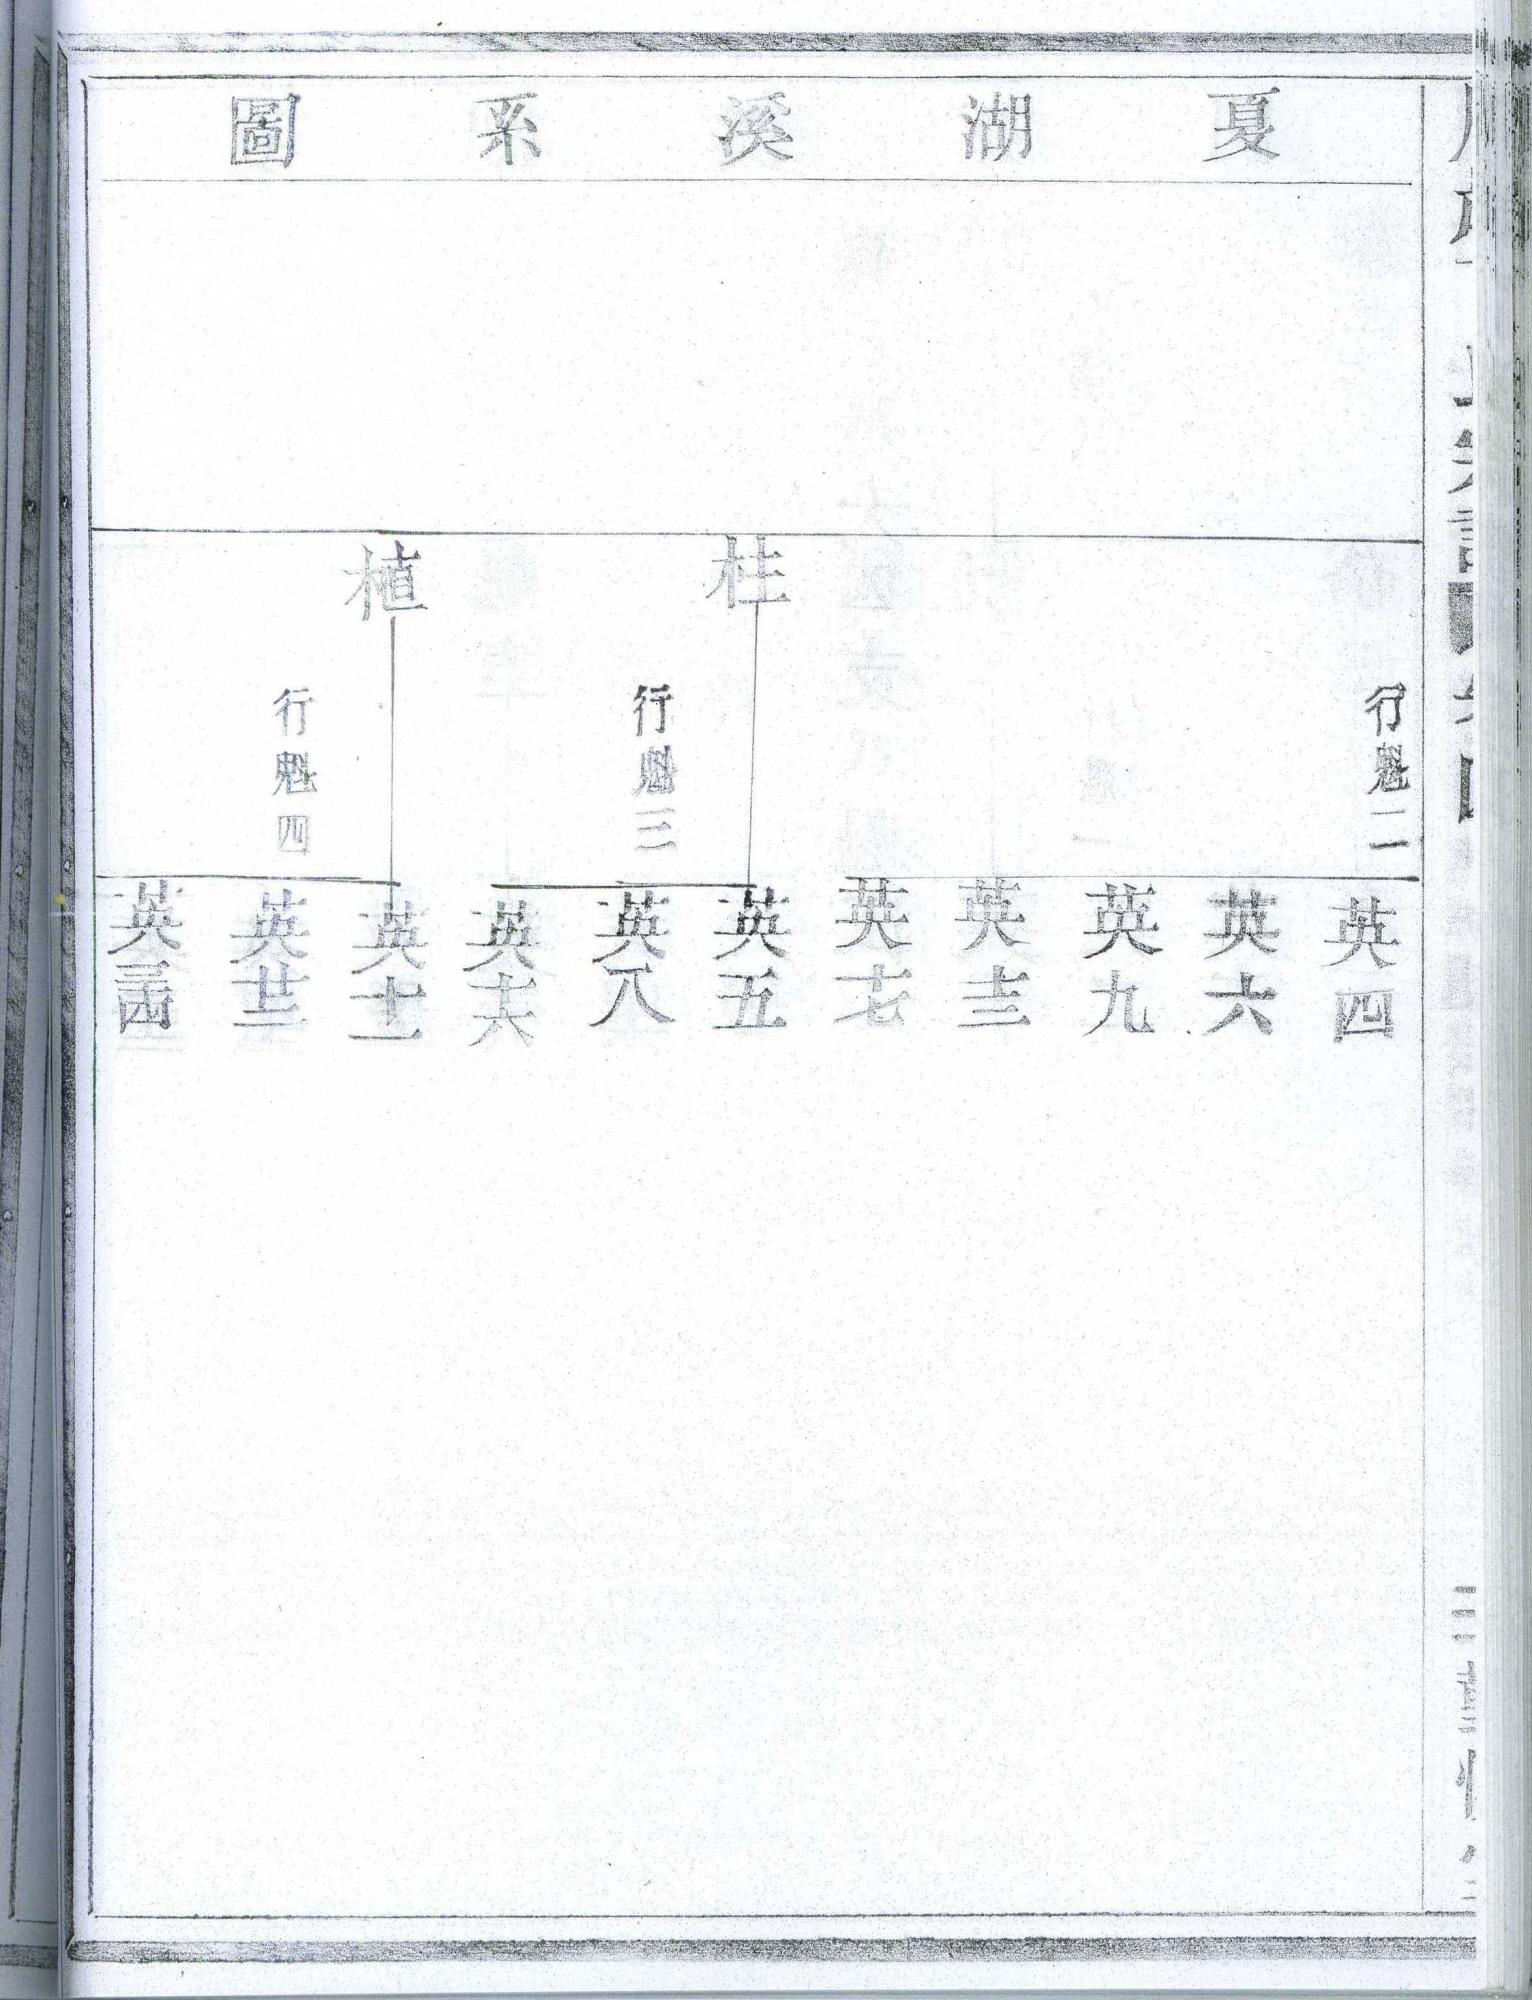 夏湖溪系圖
行魁二
英四
英六
英九
英十三
英十七
柱
行魁三
英五
英八
英十六
植
行魁四
英十一
英
英